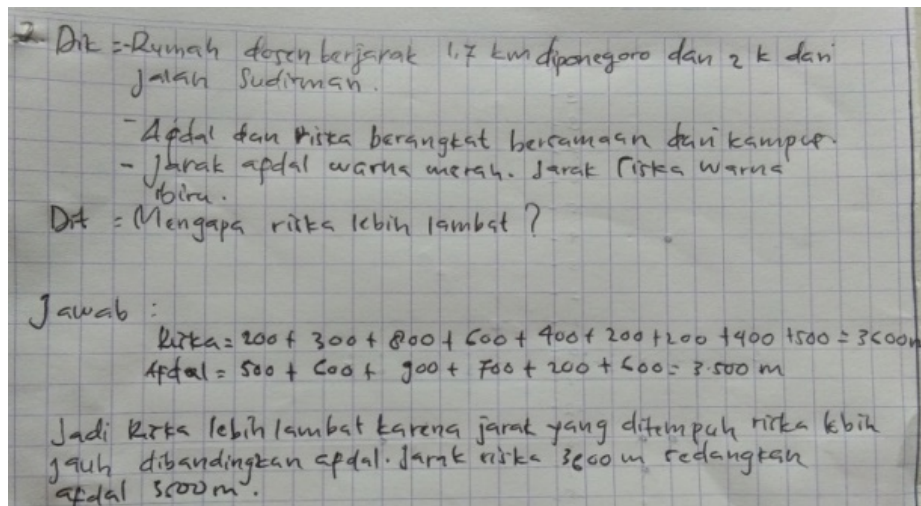 2 Dik =-Rumah dosen berjarak 1,7 km diponegoro dan 2 k dari
jalan Sudirman.
- Afdal dan riska berangkat bersamaan dari kampus.
- jarak afdal warna merah. Jarak riska warna
biru.
Dit = Mengapa riska lebih lambat ?
Jawab :
Riska = 200 + 300 + 800 + 600 + 400 + 200 + 200 + 400 + 500 = 3600 m
Afdal = 500 + 600 + 900 + 700 + 200 + 600 = 3.500 m
Jadi Riska lebih lambat karena jarak yang ditempuh riska lbih
jauh dibandingkan afdal. Jarak riska 3600 m sedangkan
afdal 3500 m.